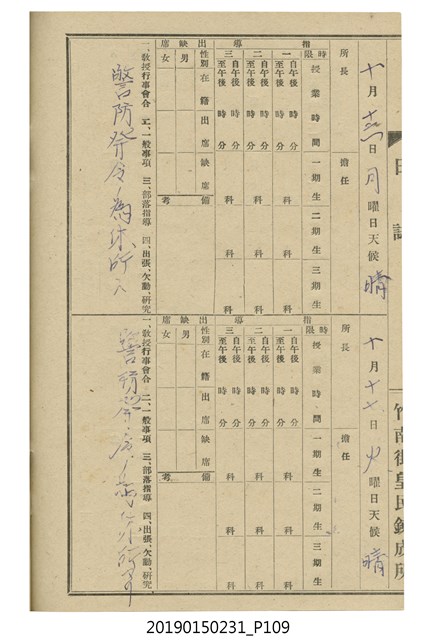 十月十六日月曜日天候晴
日誌
所長
擔任
指導
時限 一 二 三
授業時間
自午後 時 分
至午後 時 分
自午後 時 分
至午後 時 分
自午後 時 分
至午後 時 分
一期生 二期生 三期生
科 科 科
科 科 科
科 科 科
出缺席
性別 男 女
在籍
出席
缺席
備考
一、教授行事會合 二、一般事項 三、部落指導 四、出張、欠勤、研究
警防發令ノ為休所ス
十月十七日火曜日天候晴
竹南街皇民鍊成所
所長
擔任
指導
時限 一 二 三
授業時間
自午後 時 分
至午後 時 分
自午後 時 分
至午後 時 分
自午後 時 分
至午後 時 分
一期生 二期生 三期生
科 科 科
科 科 科
科 科 科
出缺席
性別 男 女
在籍
出席
缺席
備考
一、教授行事會合 二、一般事項 三、部落指導 四、出張、欠勤、研究
20190150231_P109